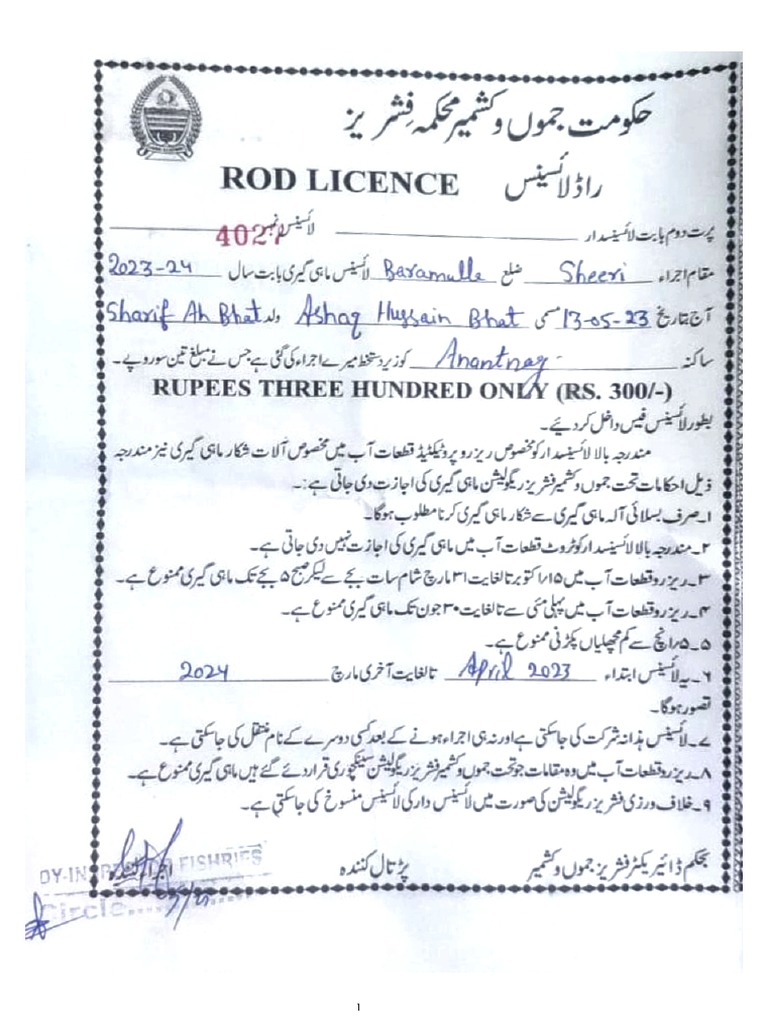 حکومت جموں و کشمیر محکمہ فشریز
ROD LICENCE راڈ لائسینس
پرت دوم بابت لائسینسدار لائسینس نمبر 4027
مقام اجراء Sheeri ضلع Baramulle لائسینس ماہی گیری بابت سال 2023-24
آج بتاریخ 13-05-23 مسمی Ashaq Hussain Bhat ولد Sharif Ah Bhat
ساکنہ Anantnag کو زیر دستخط میرے اجراء کی گئی ہے جس نے مبلغ تین سو روپے۔
RUPEES THREE HUNDRED ONLY (RS. 300/-)
بطور لائسینس فیس داخل کر دیئے۔
مندرجہ بالا لائسینسدار کو مخصوص ریزرو پروٹیکٹیڈ قطعات آب میں مخصوص آلات شکار ماہی گیری نیز مندرجہ
ذیل احکامات تحت جموں و کشمیر فشریز ریگولیشن ماہی گیری کی اجازت دی جاتی ہے:۔
۱۔ صرف بسلائی آلہ ماہی گیری سے شکار ماہی گیری کرنا مطلوب ہوگا۔
۲۔ مندرجہ بالا لائسینسدار کو ٹروٹ قطعات آب میں ماہی گیری کی اجازت نہیں دی جاتی ہے۔
۳۔ ریزرو قطعات آب میں ۱۵/اکتوبر تا لغایت ۳۱ مارچ شام سات بجے سے لیکر صبح ۵ بجے تک ماہی گیری ممنوع ہے۔
۴۔ ریزرو قطعات آب میں پہلی مئی سے تا لغایت ۳۰ جون تک ماہی گیری ممنوع ہے۔
۵۔ ۵/انچ سے کم مچھلیاں پکڑنی ممنوع ہے۔
۶۔ یہ لائسینس ابتداء April 2023 تا لغایت آخری مارچ 2024
تصور ہوگا۔
۷۔ لائسینس ہذا نہ شرکت کی جاسکتی ہے اور نہ ہی اجراء ہونے کے بعد کسی دوسرے کے نام منتقل کی جاسکتی ہے۔
۸۔ ریزرو قطعات آب میں وہ مقامات جو تحت جموں و کشمیر فشریز ریگولیشن سینکچوری قرار دئے گئے ہیں ماہی گیری ممنوع ہے۔
۹۔ خلاف ورزی فشریز ریگولیشن کی صورت میں لائسینس دار کی لائسینس منسوخ کی جاسکتی ہے۔
بحکم ڈائریکٹر فشریز جموں و کشمیر پڑتال کنندہ اجراء کنندہ
FISHRIES
Circle
۱